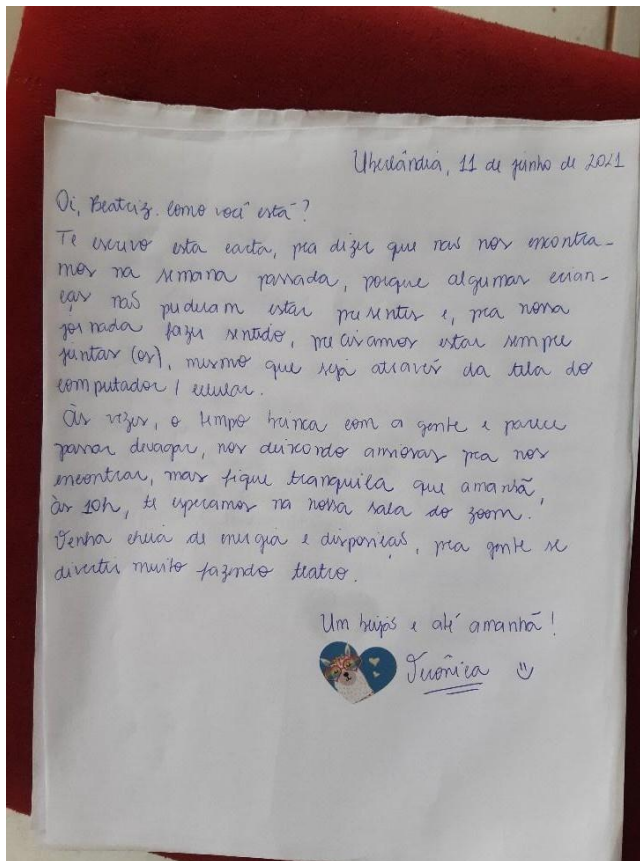 Uberlândia, 11 de junho de 2021
Oi, Beatriz. Como você está?
Te escrevo esta carta, pra dizer que não nos encontra-
mos na semana passada, porque algumas crian-
ças não puderam estar presentes e, pra nossa
jornada fazer sentido, precisamos estar sempre
juntas (os), mesmo que seja através da tela do
computador / celular.
Às vezes, o tempo brinca com a gente e parece
passar devagar, nos deixando ansiosas pra nos
encontrar, mas fique tranquila que amanhã,
às 10h, te esperamos na nossa sala do zoom!
Venha cheia de energia e disposição, pra gente se
divertir muito fazendo teatro.
Um beijos e até amanhã!
Verônica